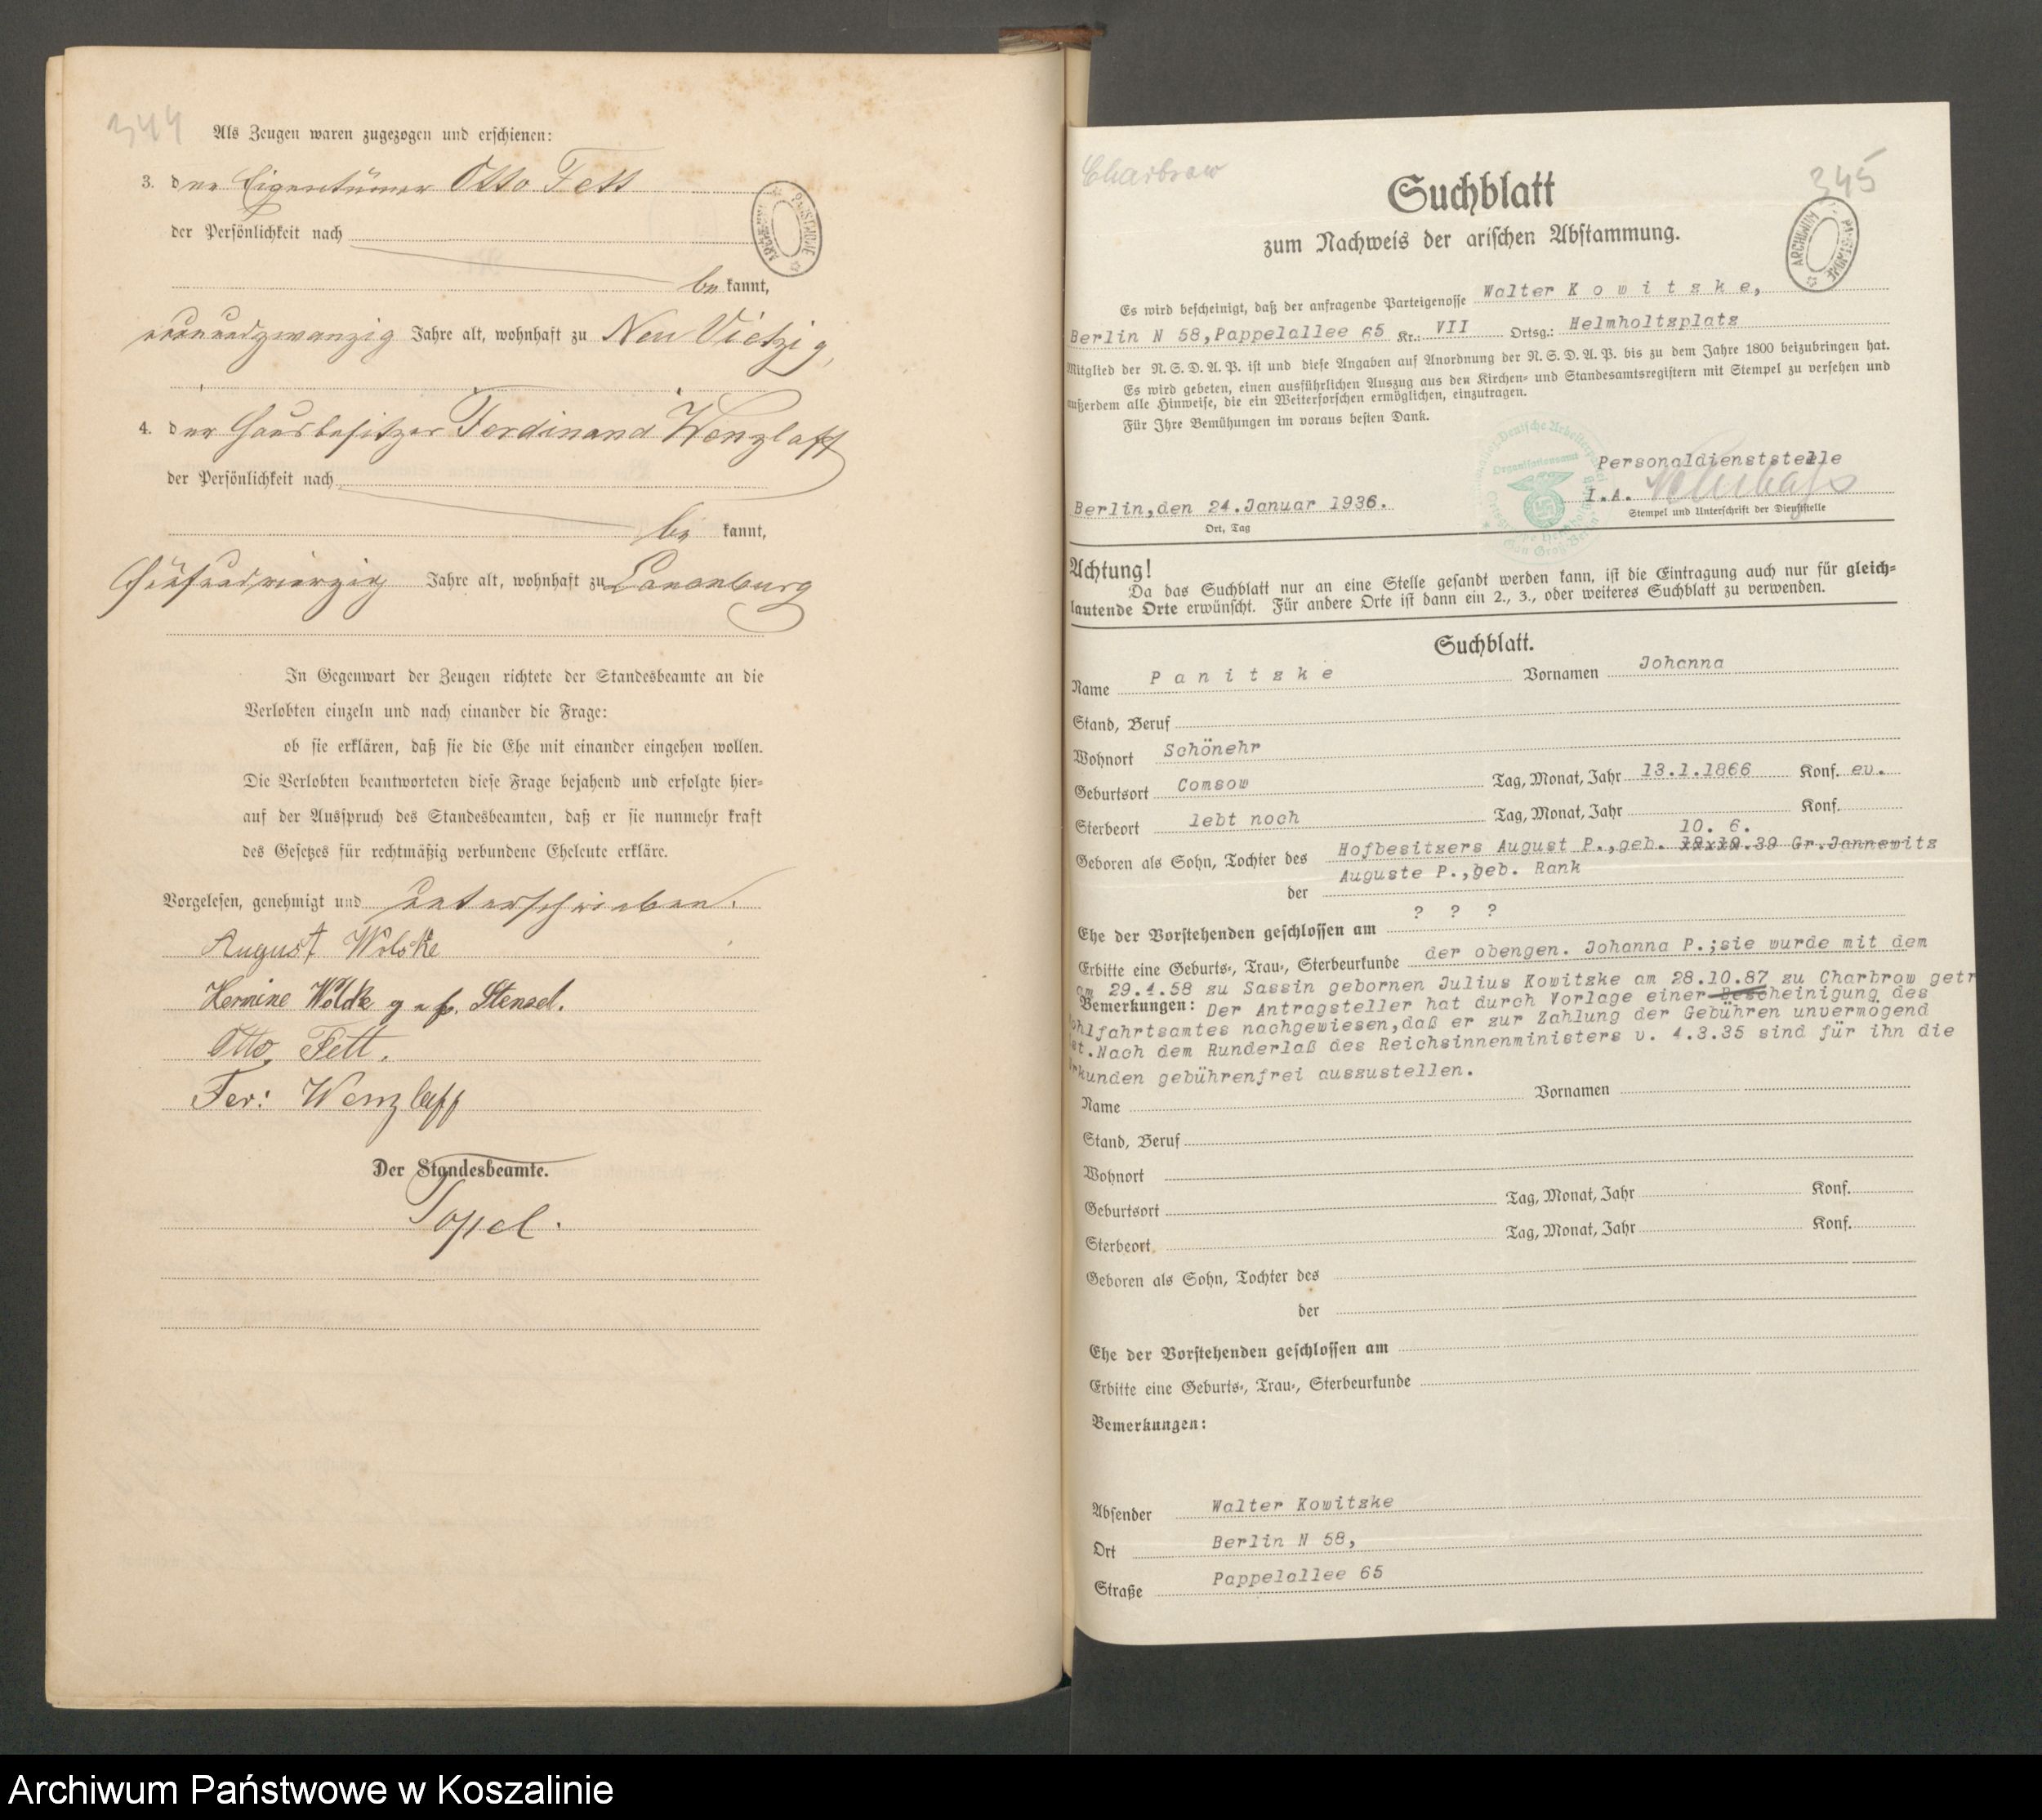 344
Als Zeugen waren zugezogen und erschienen:
3. der Eigentümer Otto Fett
der Persönlichkeit nach
be kannt,
neunundzwanzig Jahre alt, wohnhaft zu Neu Vietzig,
4. der Hausbesitzer Ferdinand Wenzlaff
der Persönlichkeit nach
be kannt,
fünfundvierzig Jahre alt, wohnhaft zu Lauenburg
In Gegenwart der Zeugen richtete der Standesbeamte an die
Verlobten einzeln und nach einander die Frage:
ob sie erklären, daß sie die Ehe mit einander eingehen wollen.
Die Verlobten beantworteten diese Frage bejahend und erfolgte hier-
auf der Ausspruch des Standesbeamten, daß er sie nunmehr kraft
des Gesetzes für rechtmäßig verbundene Eheleute erkläre.
Vorgelesen, genehmigt und unterschrieben.
August
Hermine geb. Stensel.
Otto Fett.
Fer: Wenzlaff
Der Standesbeamte.
Topel.
ARCHIWUM PAŃSTWOWE
Charbrow
345
Suchblatt
zum Nachweis der arischen Abstammung.
ARCHIWUM PAŃSTWOWE
Es wird bescheinigt, daß der anfragende Parteigenosse Walter K o w i t z k e,
Berlin N 58,Pappelallee 65 Kr.: VII Ortsg.: Helmholtzplatz
Mitglied der N.S.D.A.P. ist und diese Angaben auf Anordnung der N.S.D.A.P. bis zu dem Jahre 1800 beizubringen hat.
Es wird gebeten, einen ausführlichen Auszug aus den Kirchen- und Standesamtsregistern mit Stempel zu versehen und
außerdem alle Hinweise, die ein Weiterforschen ermöglichen, einzutragen.
Für Ihre Bemühungen im voraus besten Dank.
Personaldienststelle
Berlin,den 24.Januar 1936. I.A.
Ort, Tag Stempel und Unterschrift der Dienststelle
Achtung!
Da das Suchblatt nur an eine Stelle gesandt werden kann, ist die Eintragung auch nur für gleich-
lautende Orte erwünscht. Für andere Orte ist dann ein 2., 3., oder weiteres Suchblatt zu verwenden.
Suchblatt.
Name P a n i t z k e Vornamen Johanna
Stand, Beruf
Wohnort Schönehr
Geburtsort Comsow Tag, Monat, Jahr 13.1.1866 Konf. ev.
Sterbeort lebt noch Tag, Monat, Jahr Konf.
10. 6.
Geboren als Sohn, Tochter des Hofbesitzers August P.,geb. .39 Gr.Jannewitz
der Auguste P.,geb. Rank
Ehe der Vorstehenden geschlossen am ? ? ?
Erbitte eine Geburts-, Trau-, Sterbeurkunde der obengen. Johanna P.;sie wurde mit dem
am 29.4.58 zu Sassin gebornen Julius Kowitzke am 28.10.87 zu Charbrow getr
Bemerkungen: Der Antragsteller hat durch Vorlage einer Bescheinigung des
ohlfahrtsamtes nachgewiesen,daß er zur Zahlung der Gebühren unvermögend
st.Nach dem Runderlaß des Reichsinnenministers v. 4.3.35 sind für ihn die
rkunden gebührenfrei auszustellen.
Name Vornamen
Stand, Beruf
Wohnort
Geburtsort Tag, Monat, Jahr Konf.
Sterbeort Tag, Monat, Jahr Konf.
Geboren als Sohn, Tochter des
der
Ehe der Vorstehenden geschlossen am
Erbitte eine Geburts-, Trau-, Sterbeurkunde
Bemerkungen:
Absender Walter Kowitzke
Ort Berlin N 58,
Straße Pappelallee 65
Archiwum Państwowe w Koszalinie